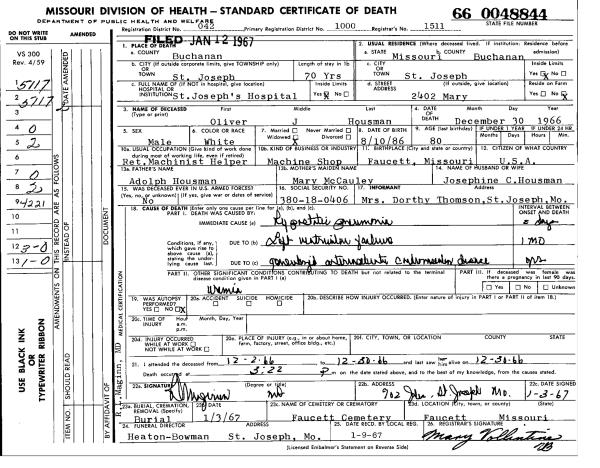 MISSOURI DIVISION OF HEALTH — STANDARD CERTIFICATE OF DEATH
66 0048844
DEPARTMENT OF PUBLIC HEALTH AND WELFARE
STATE FILE NUMBER
Registration District No. 042 Primary Registration District No. 1000 Registrar's No. 1511
DO NOT WRITE ON THIS STUB
AMENDED
FILED JAN 12 1967
VS 300
Rev. 4/59
DATE AMENDED
1. PLACE OF DEATH
a. COUNTY Buchanan
2. USUAL RESIDENCE (Where deceased lived. If institution: Residence before admission)
a. STATE Missouri b. COUNTY Buchanan
b. CITY (If outside corporate limits, give TOWNSHIP only) OR TOWN St. Joseph
Length of stay in 1b 70 Yrs
c. CITY OR TOWN St. Joseph
Inside Limits Yes No
c. FULL NAME OF (If not in hospital, give location) HOSPITAL OR INSTITUTION St.Joseph's Hospital
Inside Limits Yes No
d. STREET ADDRESS (If outside, give location) 2402 Mary
Reside on Farm Yes No
3. NAME OF DECEASED (Type or print) First Middle Last
Oliver J Housman
4. DATE OF DEATH Month Day Year
December 30 1966
5. SEX Male
6. COLOR OR RACE White
7. Married Never Married Widowed Divorced
8. DATE OF BIRTH 8/10/86
9. AGE (last birthday) 80
IF UNDER 1 YEAR Months Days
IF UNDER 24 HR. Hours Min.
10a. USUAL OCCUPATION (Give kind of work done during most of working life, even if retired) Ret.Machinist Helper
10b. KIND OF BUSINESS OR INDUSTRY Machine Shop
11. BIRTHPLACE (City and state or country) Faucett, Missouri
12. CITIZEN OF WHAT COUNTRY U.S.A.
13a. FATHER'S NAME Adolph Housman
13b. MOTHER'S MAIDEN NAME Mary McCauley
14. NAME OF HUSBAND OR WIFE Josephine C.Housman
15. WAS DECEASED EVER IN U.S. ARMED FORCES? (Yes, no, or unknown) (If yes, give war or dates of service) No
16. SOCIAL SECURITY NO. 380-18-0406
17. INFORMANT Address
Mrs. Dorthy Thomson,St.Joseph,Mo.
18. CAUSE OF DEATH (Enter only one cause per line for (a), (b), and (c).
PART I. DEATH WAS CAUSED BY:
INTERVAL BETWEEN ONSET AND DEATH
IMMEDIATE CAUSE (a) Hypostatic pneumonia days
Conditions, if any, which gave rise to above cause (a), stating the underlying cause last.
DUE TO (b) Left ventricular failure 1 MO
DUE TO (c) generalized arteriosclerotic cardiovascular disease yrs
PART II. OTHER SIGNIFICANT CONDITIONS CONTRIBUTING TO DEATH but not related to the terminal disease condition given in PART I (a)
Uremia
PART III. If deceased was female was there a pregnancy in last 90 days.
Yes No Unknown
19. WAS AUTOPSY PERFORMED? YES NO X
20a. ACCIDENT SUICIDE HOMICIDE
20b. DESCRIBE HOW INJURY OCCURRED. (Enter nature of injury in PART I or PART II of item 18.)
20c. TIME OF INJURY Hour a.m. p.m. Month, Day, Year
20d. INJURY OCCURRED WHILE AT WORK NOT WHILE AT WORK
20e. PLACE OF INJURY (e.g., in or about home, farm, factory, street, office bldg., etc.)
20f. CITY, TOWN, OR LOCATION COUNTY STATE
21. I attended the deceased from 12-2-66 to 12-30-66 and last saw him alive on 12-30-66
Death occurred at 3:22 P. on the date stated above, and to the best of my knowledge, from the causes stated.
22a. SIGNATURE (Degree or title) MD
22b. ADDRESS 902 St. Joseph Mo.
22c. DATE SIGNED 1-3-67
23a. BURIAL, CREMATION, REMOVAL (Specify) Burial
23b. DATE 1/3/67
23c. NAME OF CEMETERY OR CREMATORY Faucett Cemetery
23d. LOCATION (City, town, or county) (State) Faucett Missouri
24. FUNERAL DIRECTOR ADDRESS Heaton-Bowman St. Joseph, Mo.
25. DATE RECD. BY LOCAL REG. 1-9-67
26. REGISTRAR'S SIGNATURE Mary Vollintine
(Licensed Embalmer's Statement on Reverse Side)
USE BLACK INK OR TYPEWRITER RIBBON
AMENDMENTS ON THIS RECORD ARE AS FOLLOWS
ITEM NO. SHOULD READ INSTEAD OF
DOCUMENT
BY AFFIDAVIT OF
MEDICAL CERTIFICATION
Maginn, MD
1 5117
2 5717
3
4 0
5 2
6
7 0
8 2
9 4221
10
11
12 3-0
13 1-0